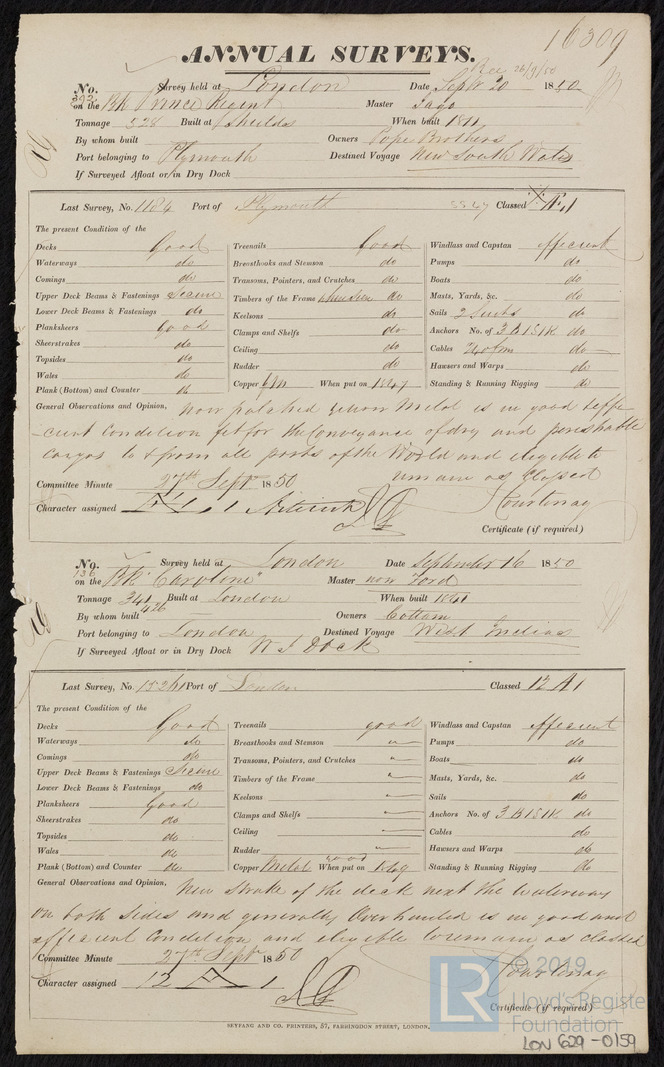 16309
ANNUAL SURVEYS.
Rec 26/9/50
No. 392 Survey held at London Date Sept 20 1850
on the Bk Prince Regent Master Jago
Tonnage 528 Built at Shields When built 1811
By whom built Owners Pope Brothers
Port belonging to Plymouth Destined Voyage New South Wales
If Surveyed Afloat or in Dry Dock
Last Survey, No. 1184 Port of Plymouth 5547 Classed Æ 1
The present Condition of the
Decks Good Treenails Good Windlass and Capstan efficient
Waterways do Breasthooks and Stemson do Pumps do
Comings do Transoms, Pointers, and Crutches do Boats do
Upper Deck Beams & Fastenings Secure Timbers of the Frame when seen do Masts, Yards, &c. do
Lower Deck Beams & Fastenings do Keelsons do Sails 2 Suits do
Planksheers Good Clamps and Shelfs do Anchors No. of 3 B 1 S 1 K do
Sheerstrakes do Ceiling do Cables do
Topsides do Rudder do Hawsers and Warps do
Wales do Copper When put on 1847 Standing & Running Rigging do
Plank (Bottom) and Counter do
General Observations and Opinion, now is in good & effi-
-cient condition fit for the Conveyance of dry and perishable
cargos to & from all parts of the World and eligible to
remain as Classed
Committee Minute 27th Sept 1850 Courtenay
Character assigned Æ 1
Certificate (if required)
No. 136 Survey held at London Date September 16 1850
on the Bk "Caroline" Master now Ford
Tonnage 341 426 Built at London When built 1841
By whom built Owners Cottam
Port belonging to London Destined Voyage West Indies
If Surveyed Afloat or in Dry Dock W I Dock
Last Survey, No. 15261 Port of London Classed 12 A 1
The present Condition of the
Decks Good Treenails good Windlass and Capstan efficient
Waterways do Breasthooks and Stemson " Pumps do
Comings do Transoms, Pointers, and Crutches " Boats do
Upper Deck Beams & Fastenings Secure Timbers of the Frame " Masts, Yards, &c. do
Lower Deck Beams & Fastenings do Keelsons " Sails do
Planksheers Good Clamps and Shelfs " Anchors No. of 3 B 1 S 1 K do
Sheerstrakes do Ceiling " Cables do
Topsides do Rudder " Hawsers and Warps do
Wales do Copper Metal good When put on 1849 Standing & Running Rigging do
Plank (Bottom) and Counter do
General Observations and Opinion, New Strake of the deck next the Waterway
on both sides and generally Overhauled is in good and
efficient Condition and eligible to remain as classed
Committee Minute 27th Sept 1850 Courtenay
Character assigned 12 A 1
Certificate (if required)
SEYFANG AND CO. PRINTERS, 57, FARRINGDON STREET, LONDON.
LR © 2019
Lloyd's Register
Foundation
LON 629-0159